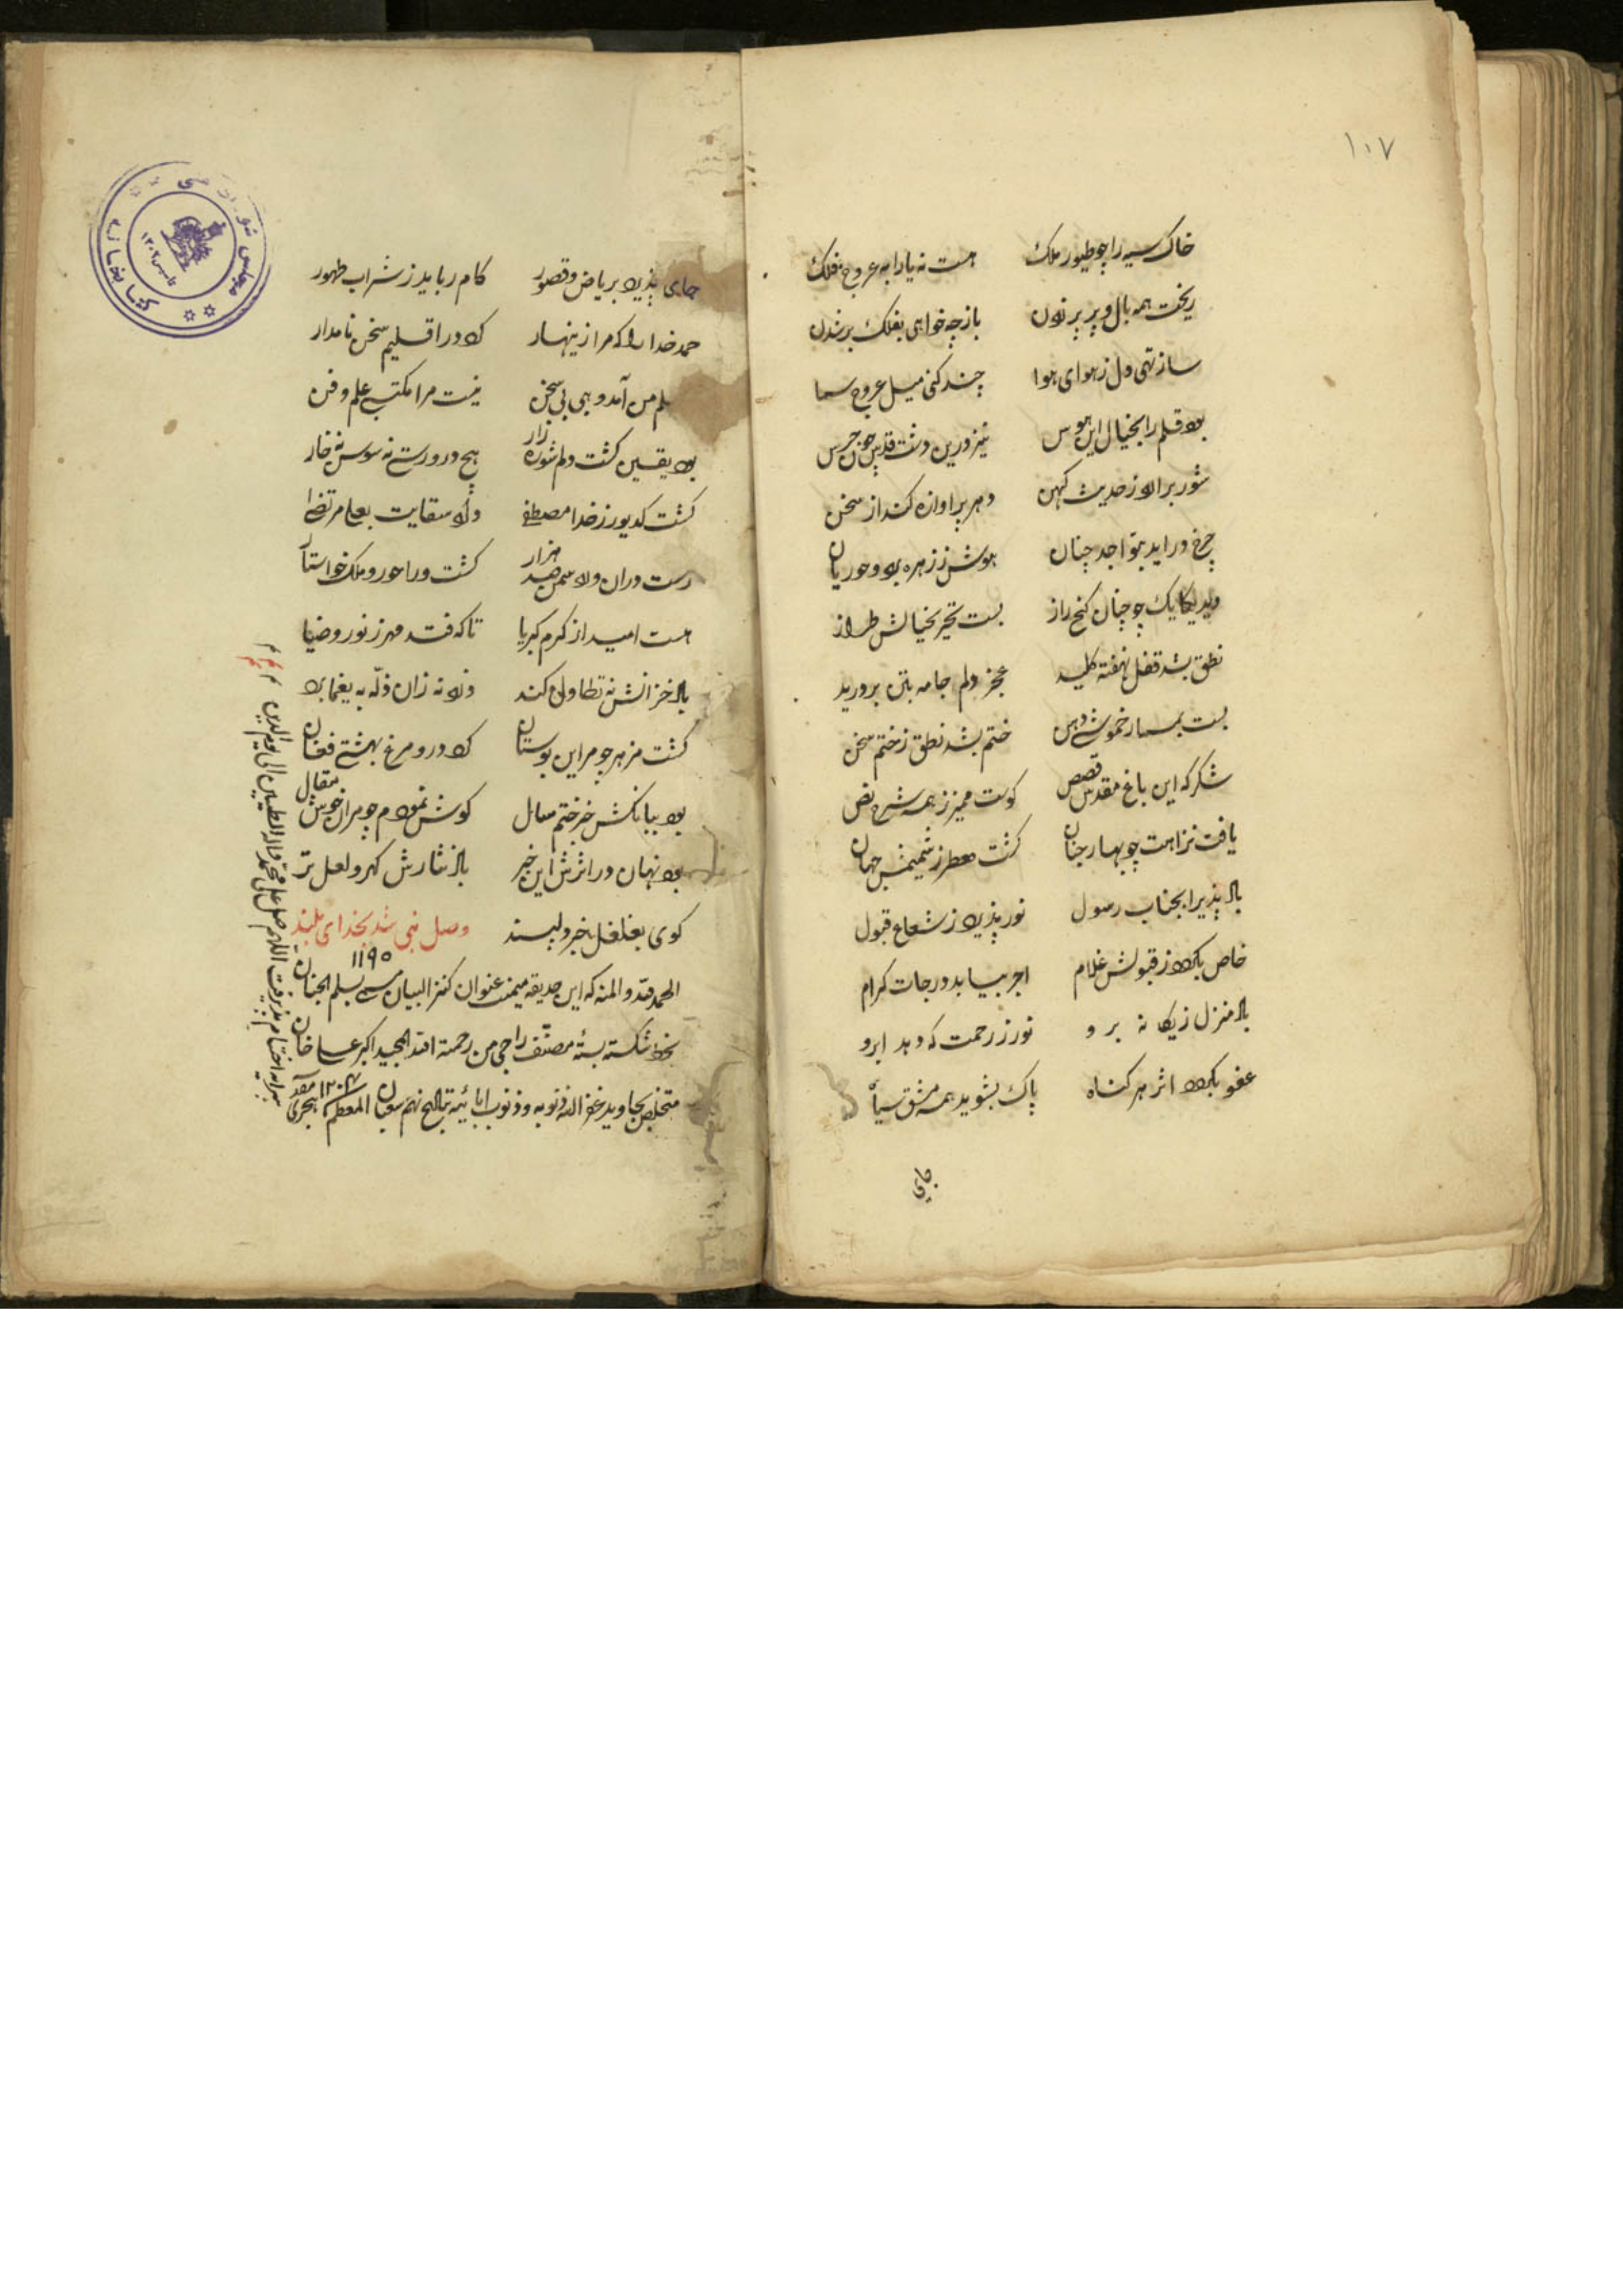 ١٠٧
خاک سیه را چو طیور ملک هست نه یارا به عروج فلک
ریخت همه بال و پر پر زدن باز چه خواهی بفلک پر شدن
ساز تهی دل ز هوای هوا چند کنی میل عروج سما
بود قلم را بخیال این هوس نیز درین دشت قدس چون جرس
شور برآرد ز حدیث کهن دهر پر آوازه کند از سخن
چرخ در آید بتواجد چنان هوش ز زهره برد و حوریان
دید یکایک چو چنان گنج راز بست تحیر بخیالش طراز
نطق بشد قفل نهفته کلید عجز دلم جامه بتن بر درید
بست بمسمار خموشی دهن ختم بشد نطق ز ختم سخن
شکر که این باغ مقدس قصص کوست ممیز ز همه شرح نص
یافت نزاهت چو بهار جنان گشت معطر ز شمیمش جهان
باد پذیرا بجناب رسول نور پذیرد ز شعاع قبول
خاص بگردد ز قبولش غلام اجر بیابد درجات کرام
باد منزل ز یکا نه بر و نور ز رحمت که دهد ابرو
عفو بگردد اثر هر گناه پاک بشوید همه مشق سیاه
جای
جای پذیرد بریاض و قصور کام رباید ز شراب طهور
حمد خدا را که مرا زینهار کرد در اقلیم سخن نامدار
علم من آمد وهبی بی سخن نیست مرا مکتسبی علم و فن
بود یقین گشت دلم شوره زار هیچ درو رست نه سوسن نه خار
گشت کدیور ز خدا مصطفی داد سقایت بعلی مرتضی
رست دران ورد و سمن صد هزار گشت ورا حور و ملک خواستار
هست امید از کرم کبریا تا که فتد مهر ز نور و ضیا
باد خزانش نه تطاول کند دزد نه زان ذلّه به یغما برد
گشت مزهر چو مر این بوستان کرد درو مرغ بهشتی فغان
بود ببانگش خبر ختم سال گوش نمودم چو مران خوش مقال
بود نهان در اثرش این خبر باد نثارش گهر و لعل تر
گوی بغلغل خبر دلپسند وصل نبی شد بخدای بلند
١١٩٥
الحمد لله و المنه که این حدیقه میمنت عنوان کنز البیان مسمی بسلم الجنان
بخط شکسته بسته مصنف راجی من رحمة الله المجید اکبر علی خان
متخلص بجاوید غفر الله ذنوبه و ذنوب ابائیه بتاریخ نهم شعبان المعظم ١٢٠٧ هجری
پیرایه اختتام پذیرفت اللهم صل علی محمد و آله الطیبین الی یوم الدین
کتابخانه مجلس شورای ملی